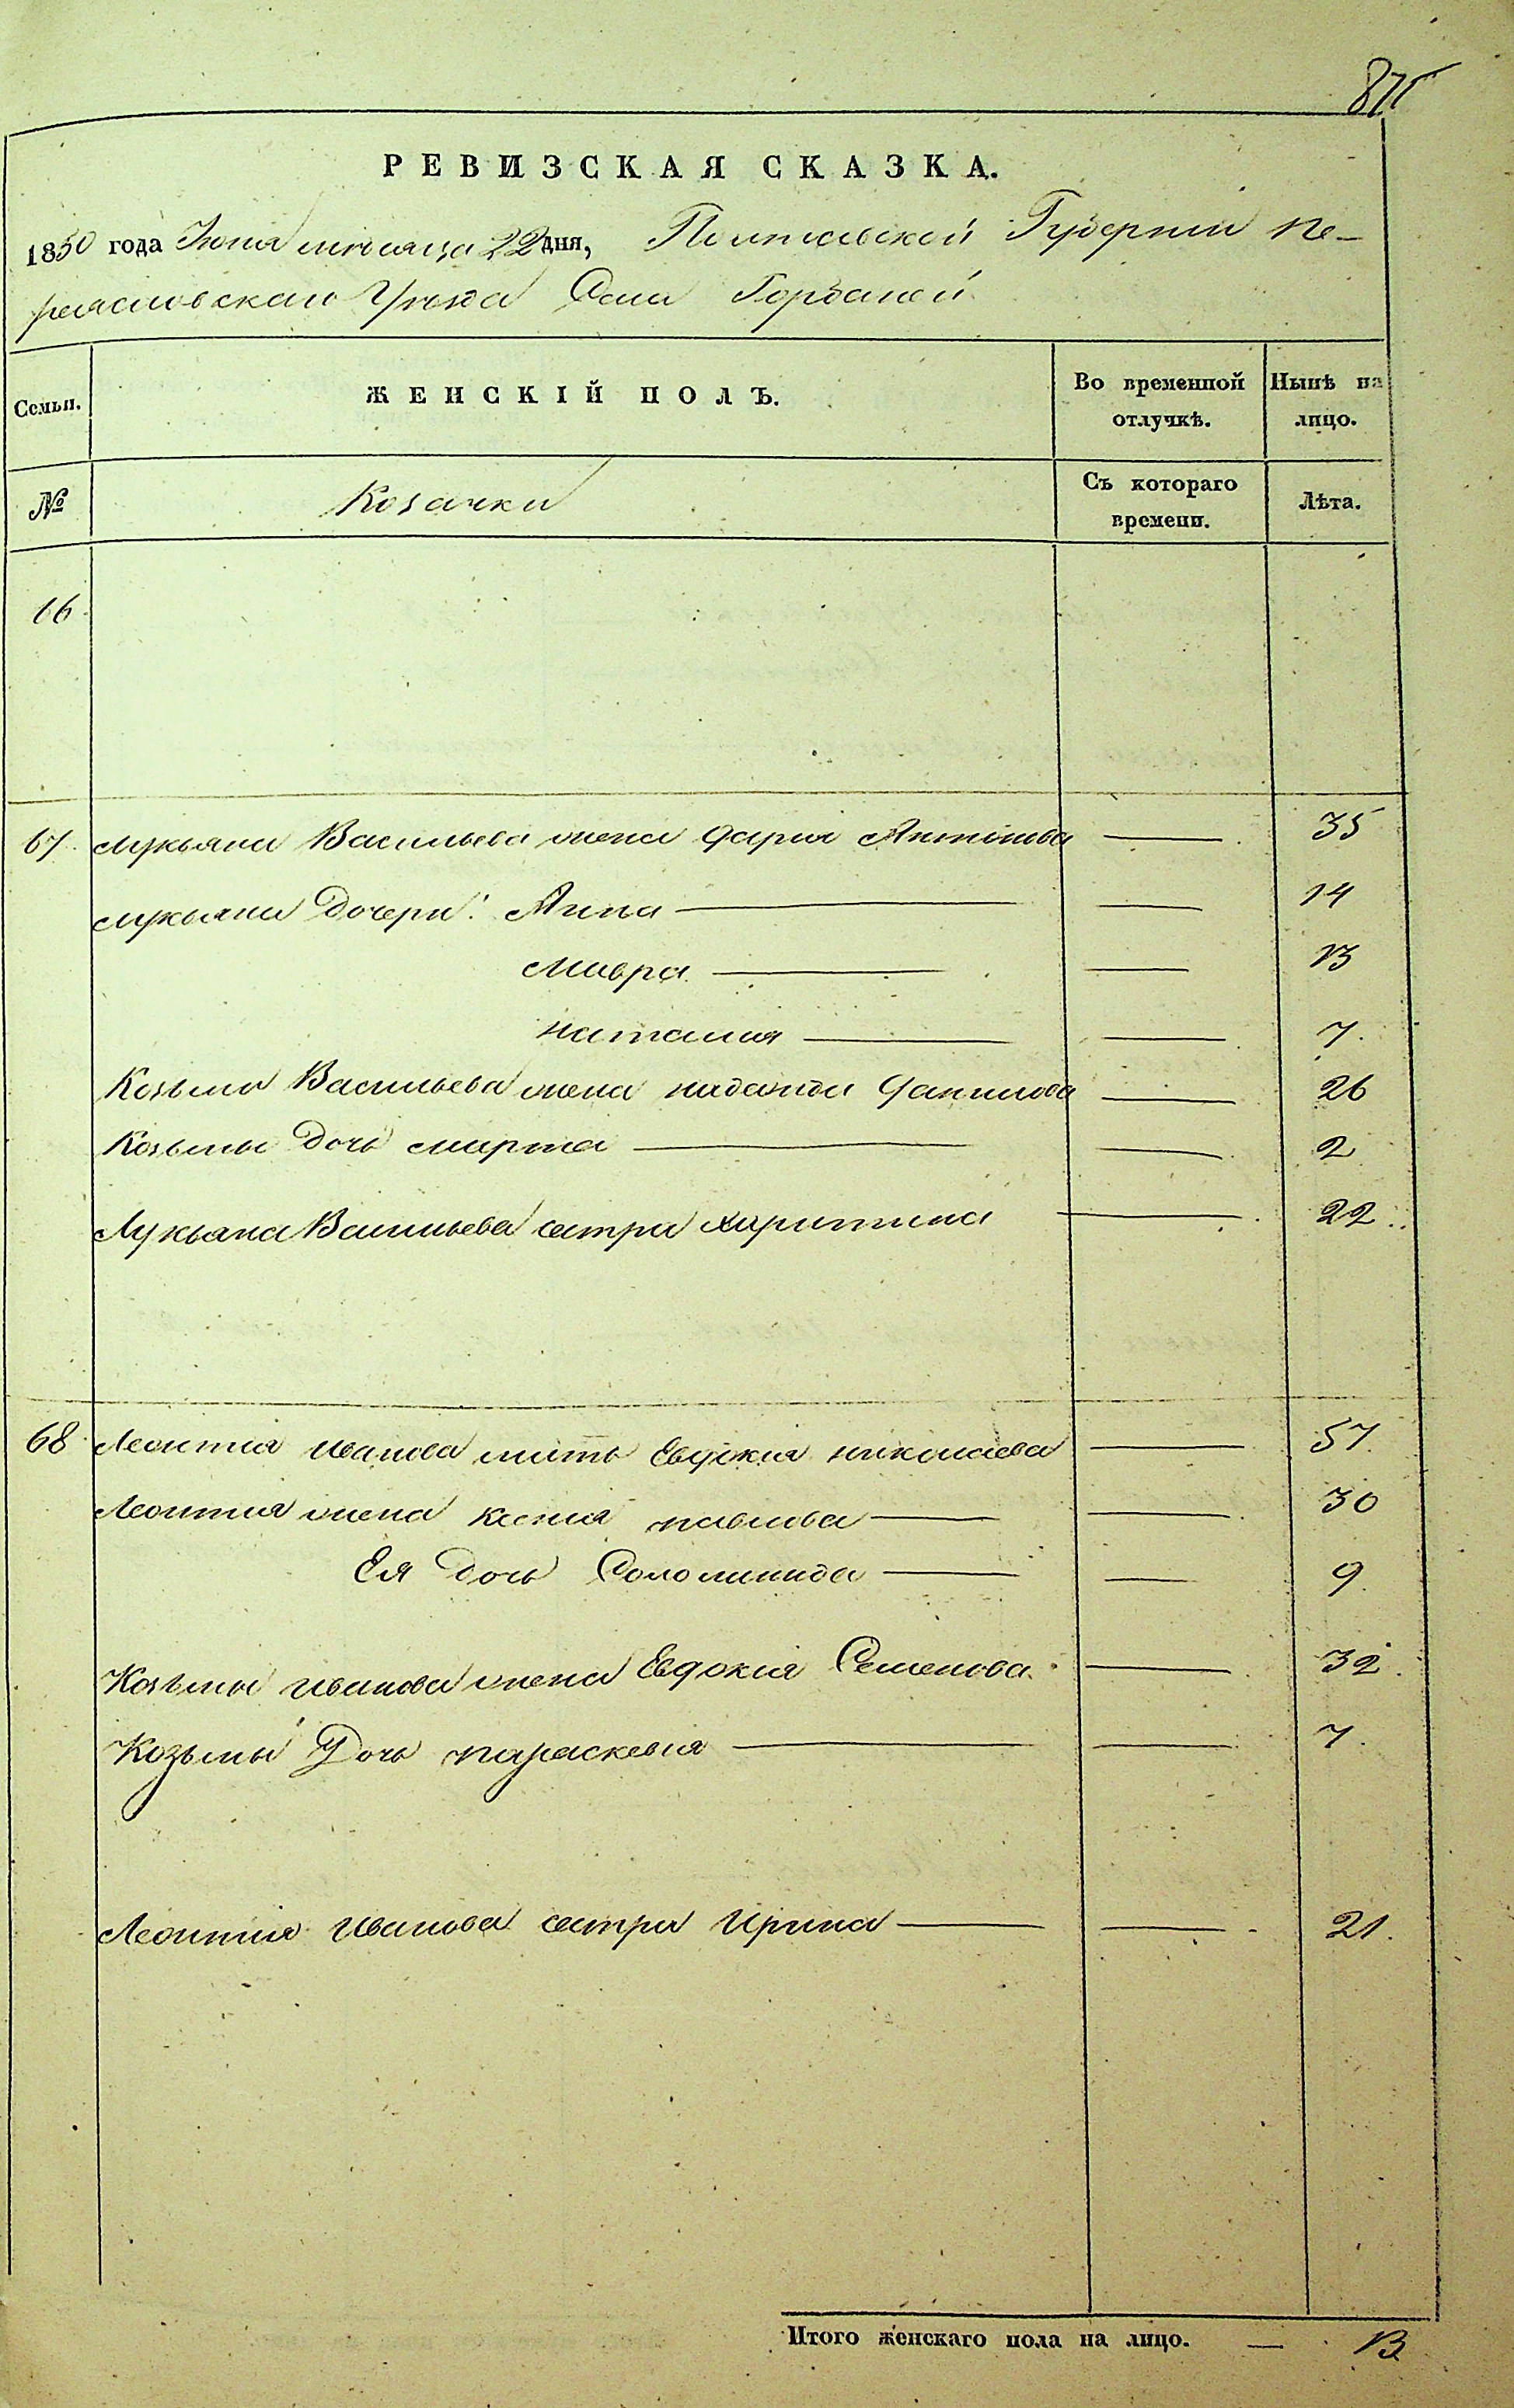 875
РЕВИЗСКАЯ СКАЗКА.
1850 года Іюня мѣсяца 22 дня, Полтавской Губерніи Пе-
реяславскаго Уѣзда Села Горбаней
Семьи. ЖЕНСКІЙ ПОЛЪ. Во временной отлучкѣ. Нынѣ на лицо.
№ Козачки Съ котораго времени. Лѣта.
66
67. Лукьяна Васильева жена Дарія Антонова — 35
Лукьяна Дочери: Анна — — 14
Мавра — — 13
Наталія — — 7.
Козьмы Васильева жена Надежда Данилова — 26
Козьмы Дочь Марта — — 2
Лукьяна Васильева сестра Харитина — 22.
68 Леонтія Иванова мать Евдокія Николаева — 57.
Леонтія жена Ксенія Павлова — — 30
Ея Дочь Соломинида — — 9.
Козьмы Иванова жена Евдокія Семенова — 32.
Козьмы Дочь Параскевія — — 7.
Леонтія Иванова сестра Ирина — — 21.
Итого женскаго пола на лицо. — 13